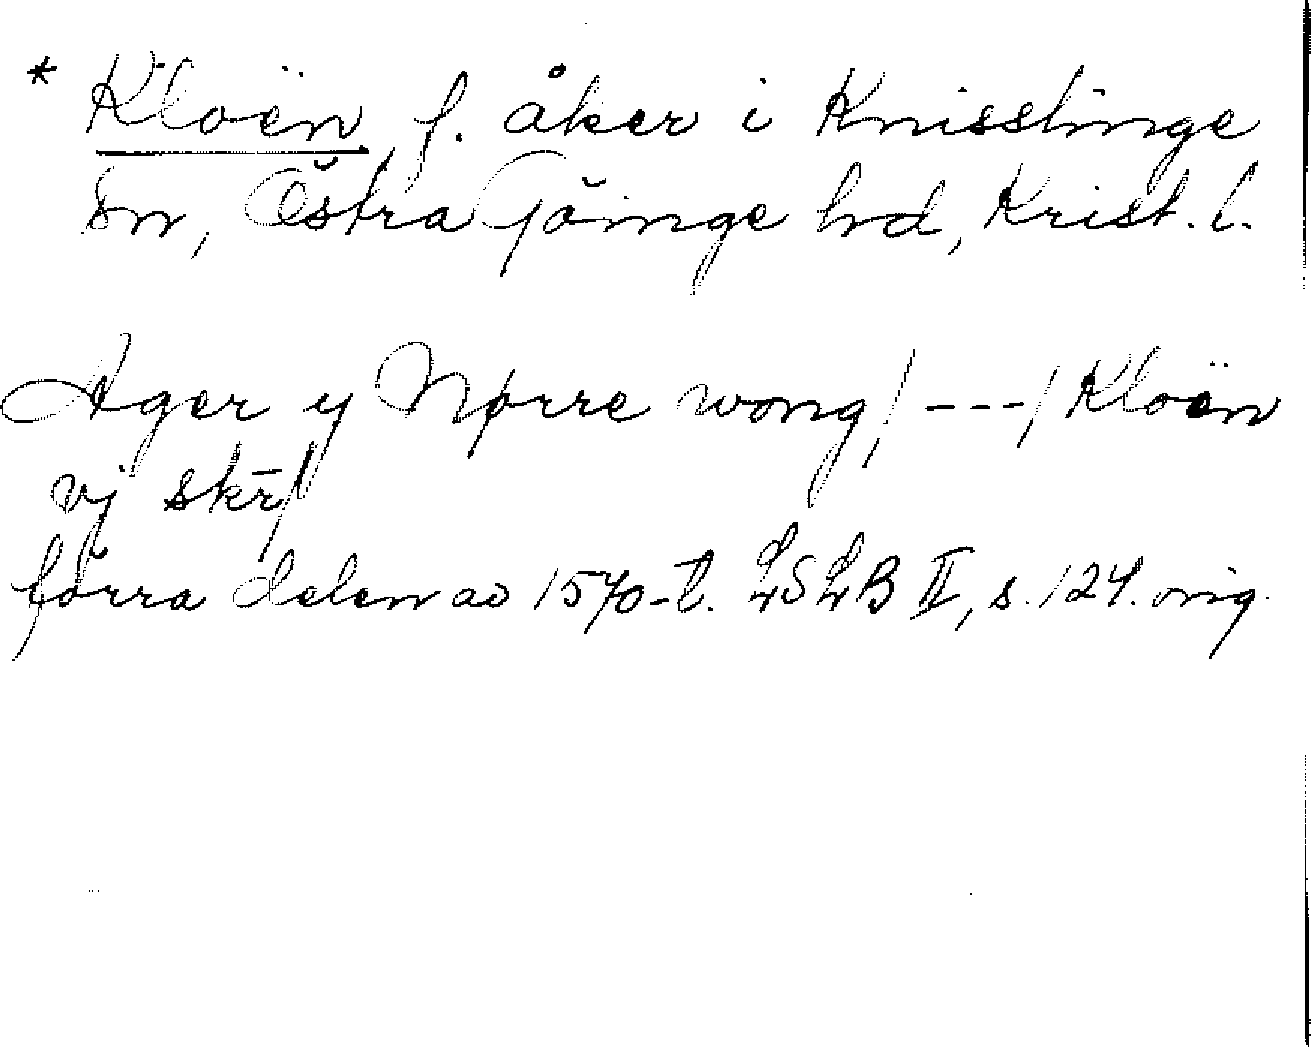 * Kloën, f. åker i Knisslinge
sn, Östra Göinge hd, Krist. l.
Ager y Nørre wong/ --- / Kloën
vj skr̄/
förra delen av 1570-t. LSLB II, s. 124. orig.